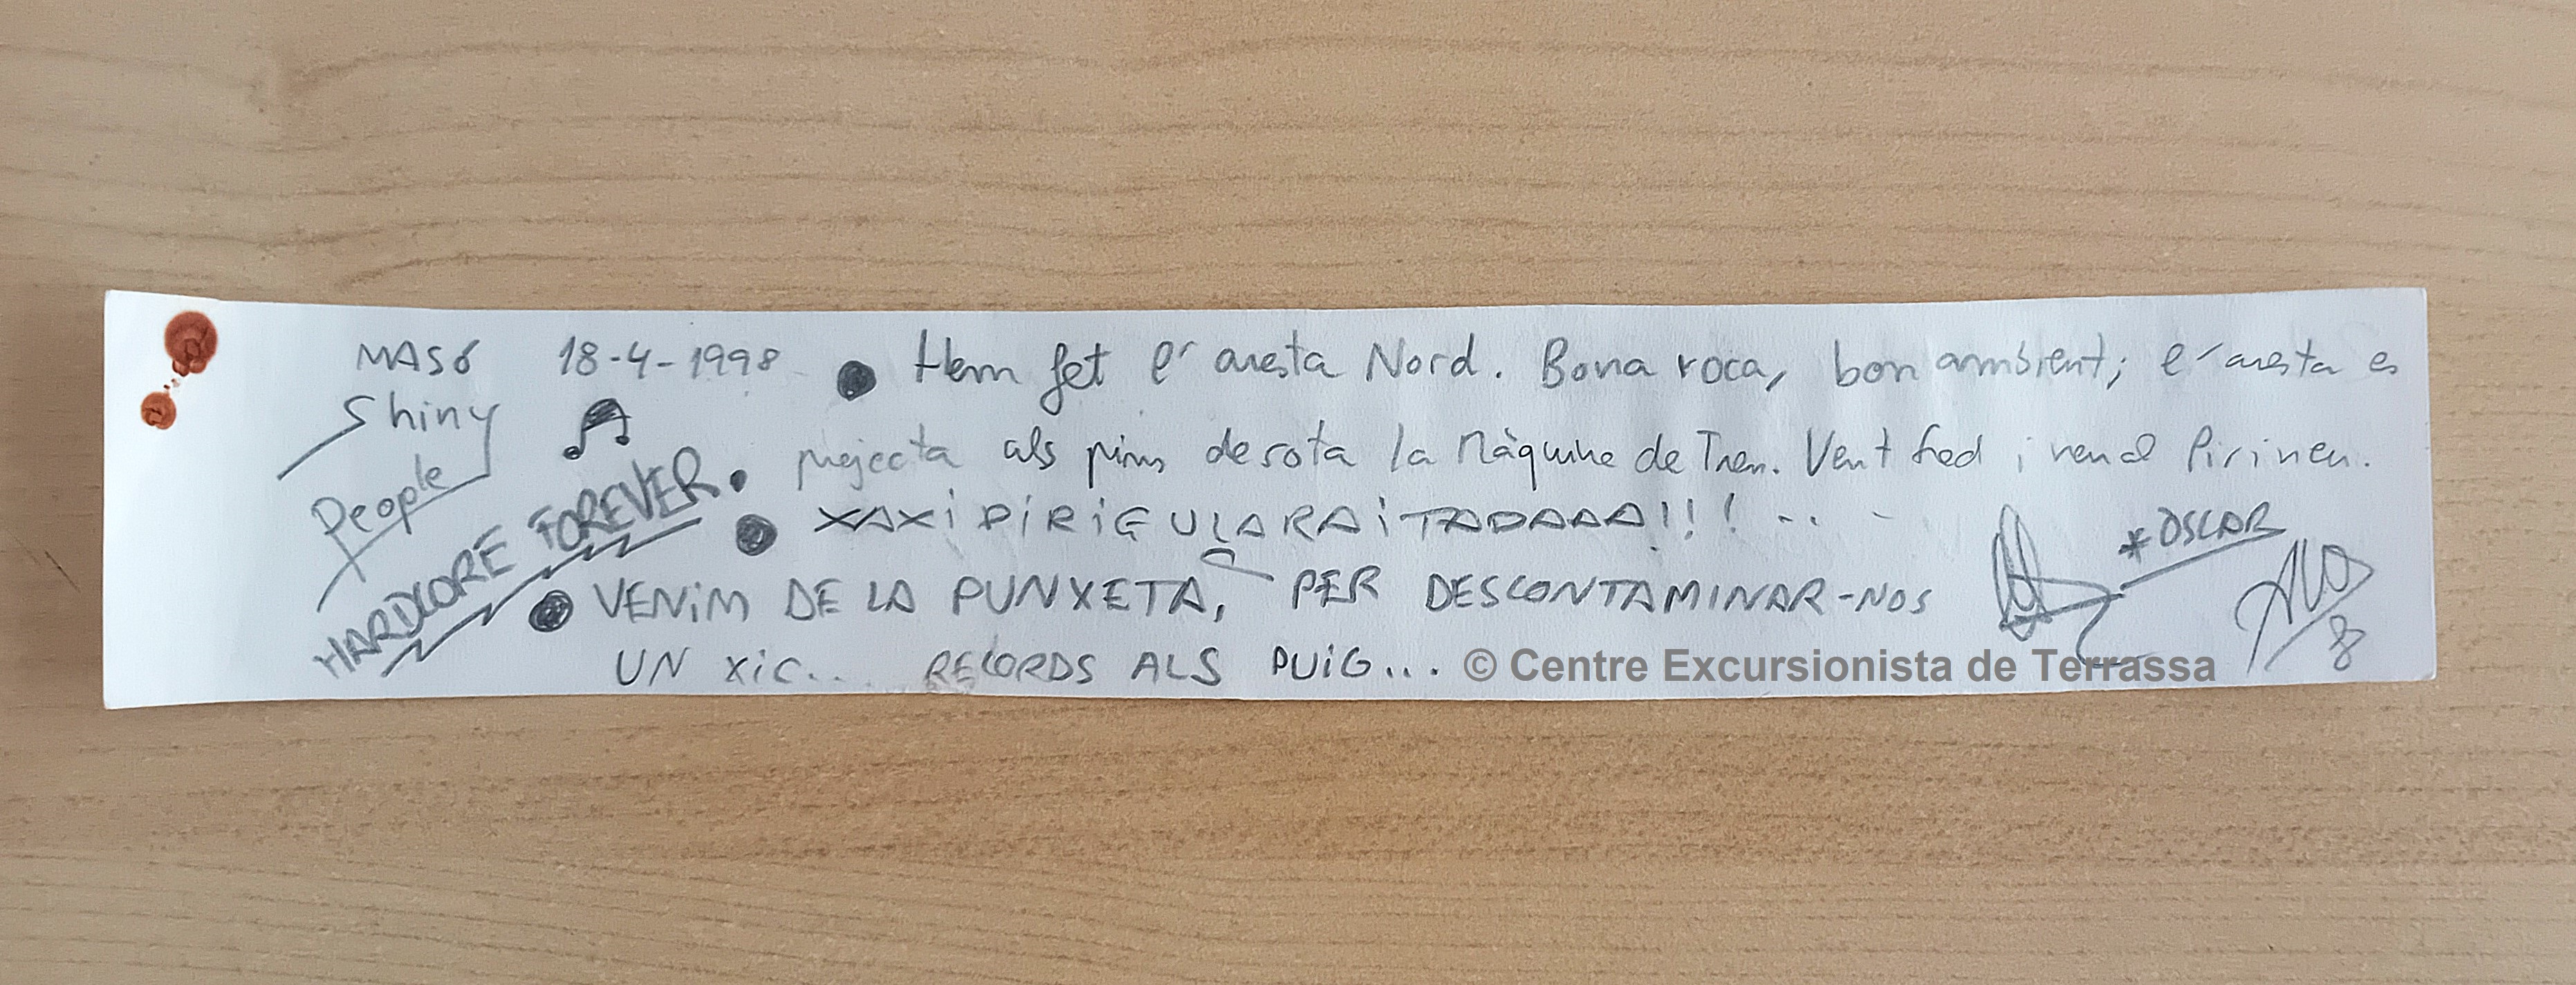 MASÓ 18-4-1998 Hem fet l'aresta Nord. Bona roca, bon ambient; l'aresta es
Shiny
People
HARDCORE FOREVER.
projecta als pins de sota la Màquina de Tren. Vent fred i ven al Pirineu.
XAXIPIRIGULARAITADAAA!!! . . .
VENIM DE LA PUNXETA, PER DESCONTAMINAR-NOS
UN XIC... RECORDS ALS PUIG...
* OSCAR
© Centre Excursionista de Terrassa